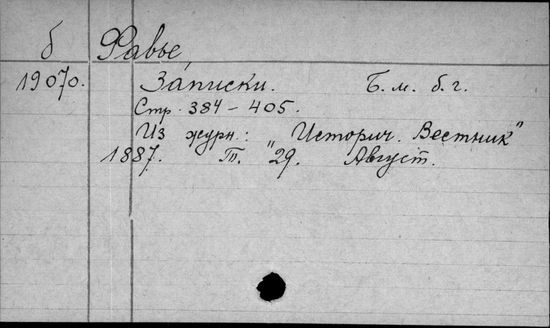 б Фавье
19070. Записки. Б.м. б.г.
Стр. 384 - 405.
Из журн.: "Историч. Вестник"
1887. Т. 29. Август.